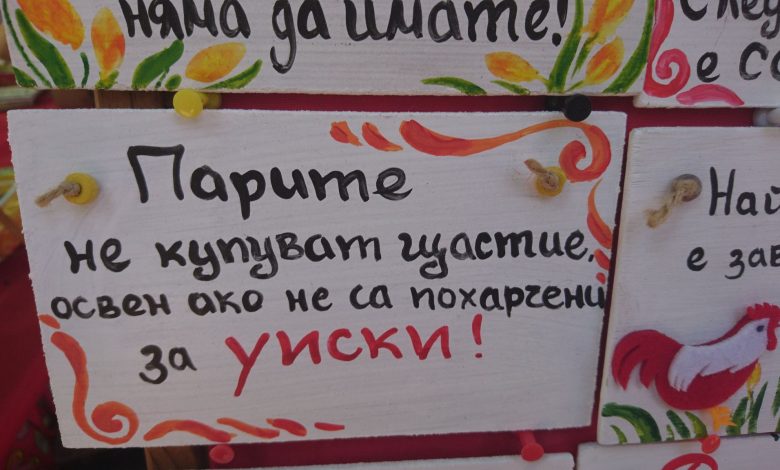 няма да имате!
Парите
не купуват щастие,
освен ако не са похарчени
за уиски!
е
е